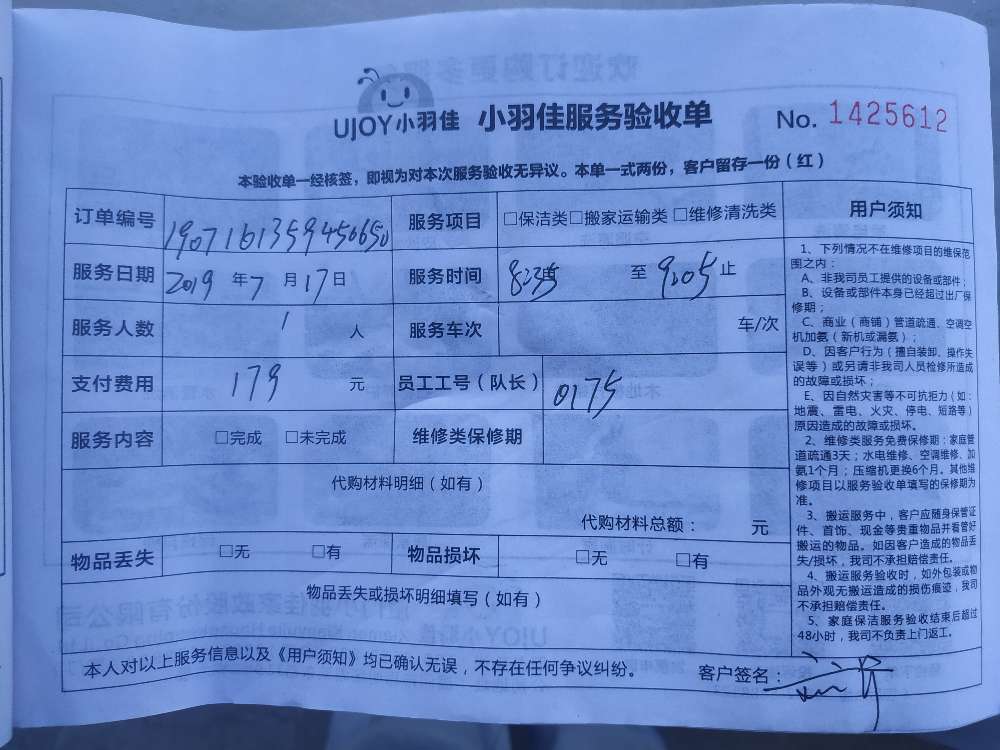 UJOY小羽佳 小羽佳服务验收单 No. 1425612
本验收单一经核签，即视为对本次服务验收无异议。本单一式两份，客户留存一份（红）
订单编号 1907161359450650 服务项目 □保洁类□搬家运输类□维修清洗类
服务日期 2019年7月17日 服务时间 至9:05止
服务人数 1人 服务车次 车/次
支付费用 179元 员工工号（队长） 0175
服务内容 □完成 □未完成 维修类保修期
代购材料明细（如有）
代购材料总额： 元
物品丢失 □无 □有 物品损坏 □无 □有
物品丢失或损坏明细填写（如有）
本人对以上服务信息以及《用户须知》均已确认无误，不存在任何争议纠纷。 客户签名：
用户须知
1、下列情况不在维修项目的维保范
围之内：
A、非我司员工提供的设备或部件；
B、设备或部件本身已经超过出厂保
修期；
C、商业（商铺）管道疏通、空调空
机加氨（新机或漏氨）；
D、因客户行为（擅自装卸、操作失
误等）或另请非我司人员检修所造成
的故障或损坏；
E、因自然灾害等不可抗拒力（如：
地震、雷电、火灾、停电、短路等）
原因造成的故障或损坏。
2、维修类服务免费保修期：家庭管
道疏通3天；水电维修、空调维修、加
氨1个月；压缩机更换6个月。其他维
修项目以服务验收单填写的保修期为
准。
3、搬运服务中，客户应随身保管证
件、首饰、现金等贵重物品并看管好
搬运的物品。如因客户造成的物品丢
失/损坏，我司不承担赔偿责任。
4、搬运服务验收时，如外包装或物
品外观无搬运造成的损伤痕迹，我司
不承担赔偿责任。
5、家庭保洁服务验收结束后超过
48小时，我司不负责上门返工。